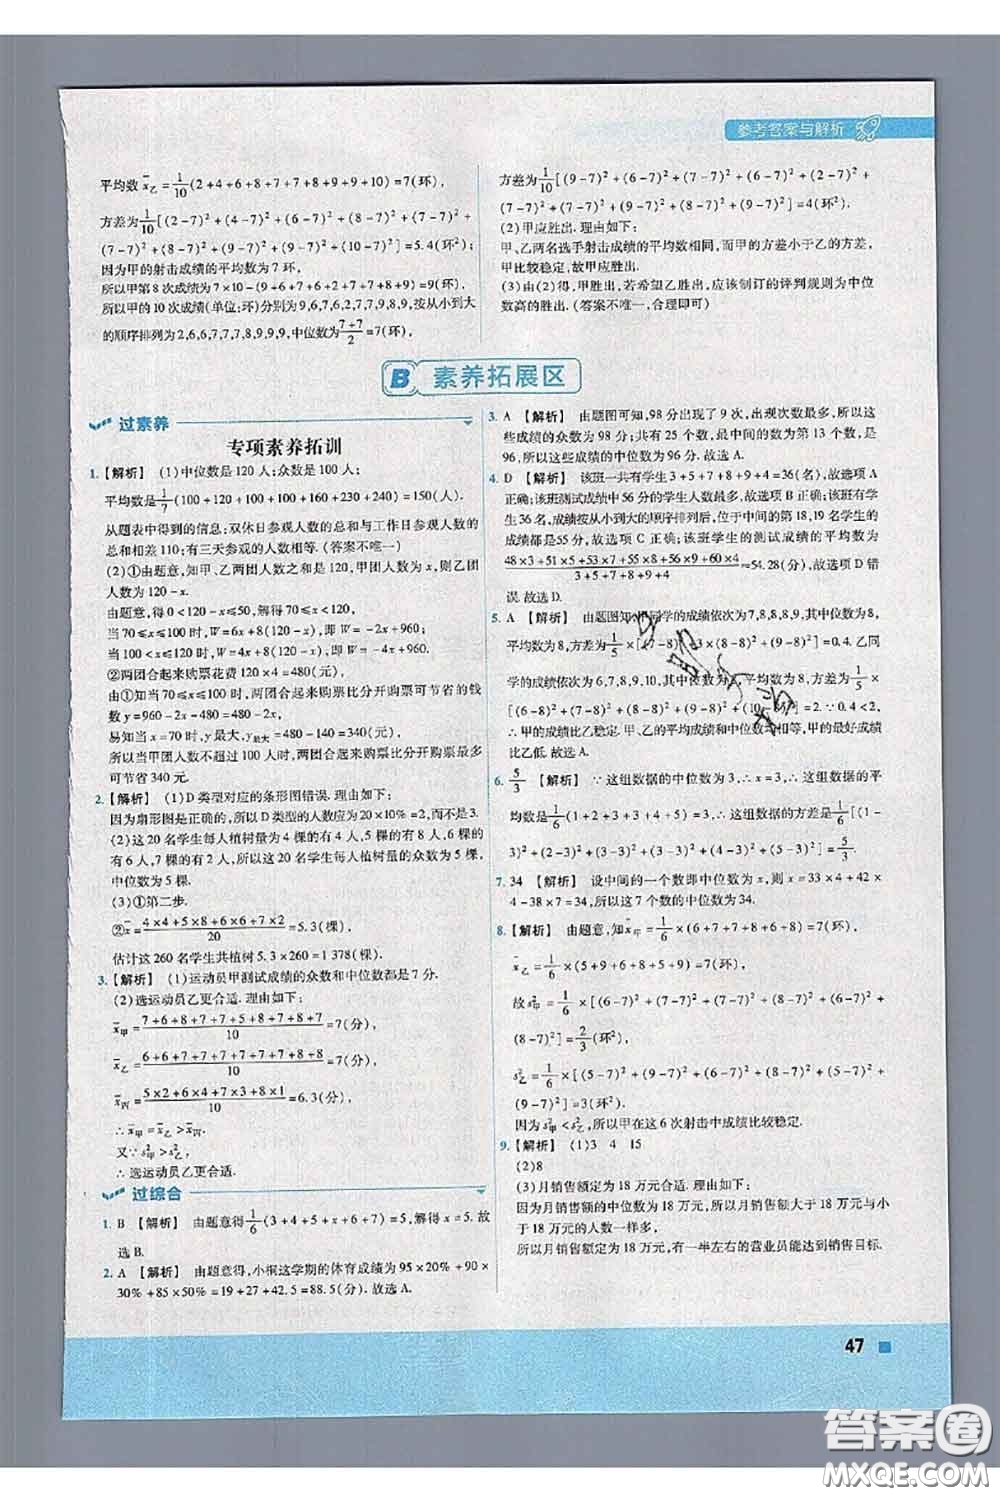 参考答案与解析
平均数x̄乙=1/10(2+4+6+8+7+7+8+9+9+10)=7(环),
方差为1/10[(2-7)²+(4-7)²+(6-7)²+(8-7)²+(7-7)²+
(7-7)²+(8-7)²+(9-7)²+(9-7)²+(10-7)²]=5.4(环²).
因为甲的射击成绩的平均数为7环,
所以甲第8次成绩为7×10-(9+6+7+6+2+7+7+8+9)=9(环),
所以甲的10次成绩(单位:环)分别为9,6,7,6,2,7,7,9,8,9,按从小到大
的顺序排列为2,6,6,7,7,7,8,9,9,9,中位数为(7+7)/2=7(环),
方差为1/10[(9-7)²+(6-7)²+(7-7)²+(6-7)²+(2-7)²+
(7-7)²+(7-7)²+(9-7)²+(8-7)²+(9-7)²]=4(环²).
(2)甲应胜出. 理由如下:
甲、乙两名选手射击成绩的平均数相同,而甲的方差小于乙的方差,
甲比较稳定,故甲应胜出.
(3)由(2)得,甲胜出,若希望乙胜出,应该制订的评判规则为中位
数高的胜出. (答案不唯一,合理即可)
B 素养拓展区
过素养
专项素养拓训
1.【解析】 (1)中位数是120人;众数是100人;
平均数是1/7(100+120+100+100+160+230+240)=150(人).
从题表中得到的信息:双休日参观人数的总和与工作日参观人数的
总和相差110;有三天参观的人数相等. (答案不唯一)
(2)①由题意,知甲、乙两团人数之和是120,甲团人数为x,则乙团
人数为120-x.
由题意,得0<120-x≤50,解得x≥70.
当70≤x≤100时,W=6x+8(120-x),即W=-2x+960;
当100<x<120时,W=4x+8(120-x),即W=-4x+960.
②两团合起来购票花费120×4=480(元),
由①知当70≤x≤100时,两团合起来购票比分开购票可节省的钱
数y=960-2x-480=480-2x(元).
易知当x=70时,y最大=480-140=340(元),
所以当甲团人数不超过100时,两团合起来购票比分开购票最多
可节省340元.
2.【解析】 (1)D类型对应的条形图错误. 理由如下:
因为扇形图是正确的,所以D类型的人数应为20×10%=2,而不是3.
(2)这20名学生每人植树量为4棵的有4人,5棵的有8人,6棵的
有6人,7棵的有2人,所以这20名学生每人植树量的众数为5棵,
中位数为5棵.
(3)①第二步.
②x̄=(4×4+5×8+6×6+7×2)/20=5.3(棵),
估计这260名学生共植树5.3×260=1 378(棵).
3.【解析】 (1)运动员甲测试成绩的众数和中位数都是7分.
(2)选运动员乙更合适. 理由如下:
x̄甲=(7+6+8+7+7+5+8+7+8+7)/10=7(分),
x̄乙=(6+6+7+7+7+7+7+7+8+8)/10=7(分),
x̄丙=(5×2+6×4+7×3+8×1)/10=6.3(分),
∴x̄甲=x̄乙>x̄丙.
又∵s²甲>s²乙,
∴选运动员乙更合适.
过综合
1. B 【解析】 由题意得1/6(3+4+5+x+6+7)=5,解得x=5. 故
选B.
2. A 【解析】 由题意得,小桐这学期的体育成绩为95×20%+90×
30%+85×50%=19+27+42.5=88.5(分). 故选A.
3. A 【解析】 由题图可知,98分出现了9次,出现次数最多,所以这
些成绩的众数为98分;共有25个数,最中间的数为第13个数,是
96,所以这些成绩的中位数为96分. 故选A.
4. D 【解析】 该班一共有学生3+5+7+8+9+4=36(名),故选项A
正确;该班测试成绩中56分的学生人数最多,故选项B正确;该班有学
生36名,成绩按从小到大的顺序排列后,位于中间的第18,19名学生的
成绩都是55分,故选项C正确;该班学生的测试成绩的平均数为
(48×3+51×5+53×7+55×8+56×9+60×4)/(3+5+7+8+9+4)≈54.28(分),故选项D错
误. 故选D.
5. A 【解析】 由题图知甲同学的成绩依次为7,8,8,8,9,其中位数为8,
平均数为8,方差为1/5×[(7-8)²+3×(8-8)²+(9-8)²]=0.4. 乙同
学的成绩依次为6,7,8,9,10,其中位数为8,平均数为8,方差为1/5
×[(6-8)²+(7-8)²+(8-8)²+(9-8)²+(10-8)²]=2. ∵0.4<2,
∴甲的成绩比乙稳定. 甲、乙的平均成绩和中位数均相等,甲的最好成绩
比乙低. 故选A.
6. 5/3 【解析】 ∵这组数据的中位数是3,∴x=3,∴这组数据的平
均数是1/6(1+2+3+3+4+5)=3,∴这组数据的方差是1/6[(1-
3)²+(2-3)²+(3-3)²+(3-3)²+(4-3)²+(5-3)²]=5/3.
7. 34 【解析】 设中间的一个数即中位数为x,则x=33×4+42
×4-38×7=34,所以这7个数的中位数为34.
8.【解析】 由题意,知x̄甲=1/6×(6+7+7+8+6+8)=7(环),
x̄乙=1/6×(5+9+6+9+8+5)=7(环),
故s²甲=1/6×[(6-7)²+(7-7)²+(7-7)²+(8-7)²+(6-7)²+
(8-7)²]=2/3(环²),
s²乙=1/6×[(5-7)²+(9-7)²+(6-7)²+(9-7)²+(8-7)²+
(5-7)²]=3(环²).
因为s²甲<s²乙,所以甲在这6次射击中成绩比较稳定.
9.【解析】 (1)3 4 15
(2)8
(3)月销售额定为18万元合适. 理由如下:
因为月销售额的中位数为18万元,所以月销售额大于18万元与小
于18万元的人数一样多,
所以月销售额定为18万元,有一半左右的营业员能达到销售目标.
47
答案圈
MXQE.COM